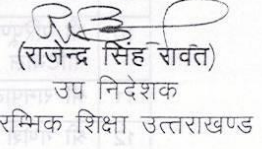 (राजेन्द्र सिंह रावत)
उप निदेशक
रम्भिक शिक्षा उत्तराखण्ड